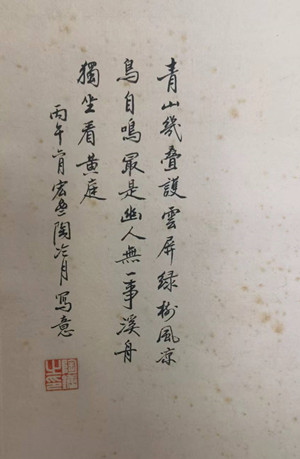 青山幾叠護雲屏绿樹風凉
鳥自鳴最是幽人無一事溪舟
獨坐看黄庭
丙午六月宏盦陶冷月寫意